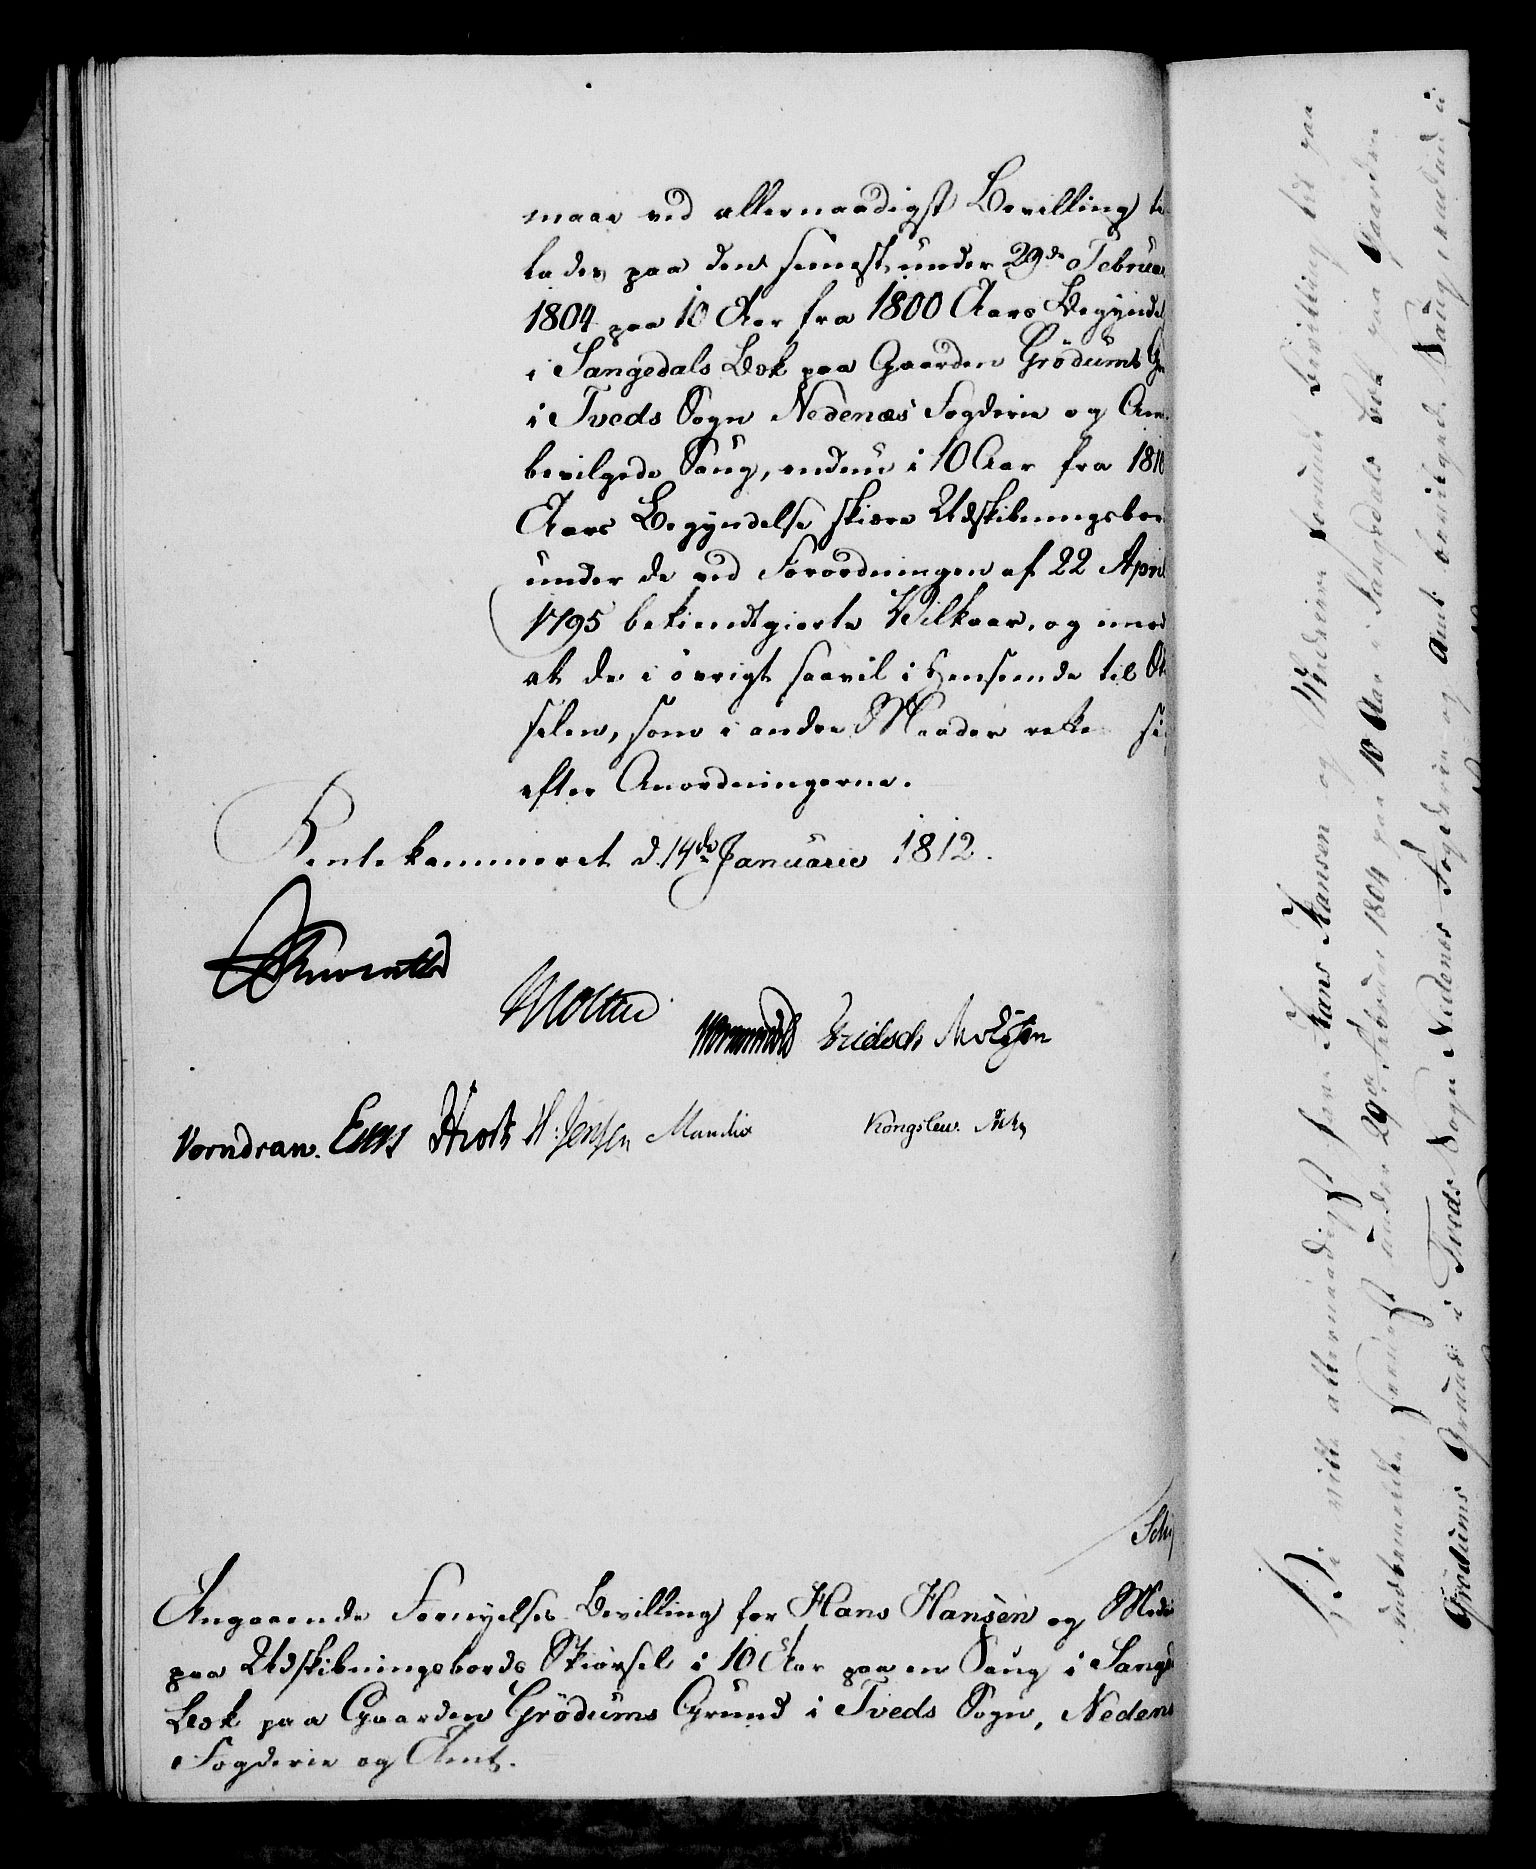 maae ved allernaadigst Bevilling ti
lades paa den seenest under 29de Februa
1804 paa 10 Aar fra 1800 Aars Begyndel
i Sangedals Bek paa Gaarden Grödums G
i Tveds Sogn Nedenæs Fogderie og Am
bevilgede Saug, endnu i 10 Aar fra 1810
Aars Begyndelse skiære Udskibningsbor
under de ved Forordningen af 22 April
1795 bekiendtgiorte Vilkaar, og imod
at de i övrigt saavel i Henseende til
selen, som i andre Maader rette si
efter Anordningerne.
Rentekammeret d. 14de Januarii 1812.
Moltke
Wormskiold
Vorndran. Evers H. Jensen
Kongslew.
Angaaende Fornyelses Bevilling for Hans Hansen og Med
paa Udskibningsbords Skiørsel i 10 Aar paa en Saug i Sange
Bek paa Gaarden Grödums Grund i Tveds Sogn, Nedenæ
Fogderie og Amt.
Vi ville allernaadigst, at Hans Hansen og Medeiere maae ved Bevilling tillades paa
seenest under 29de Februar 1804 paa 10 Aar i Sangedals Bek paa Gaarden
Grödums Grund i Tveds Sogn Nedenæs Fogderie og Amt bevilgede Saug, endnu i